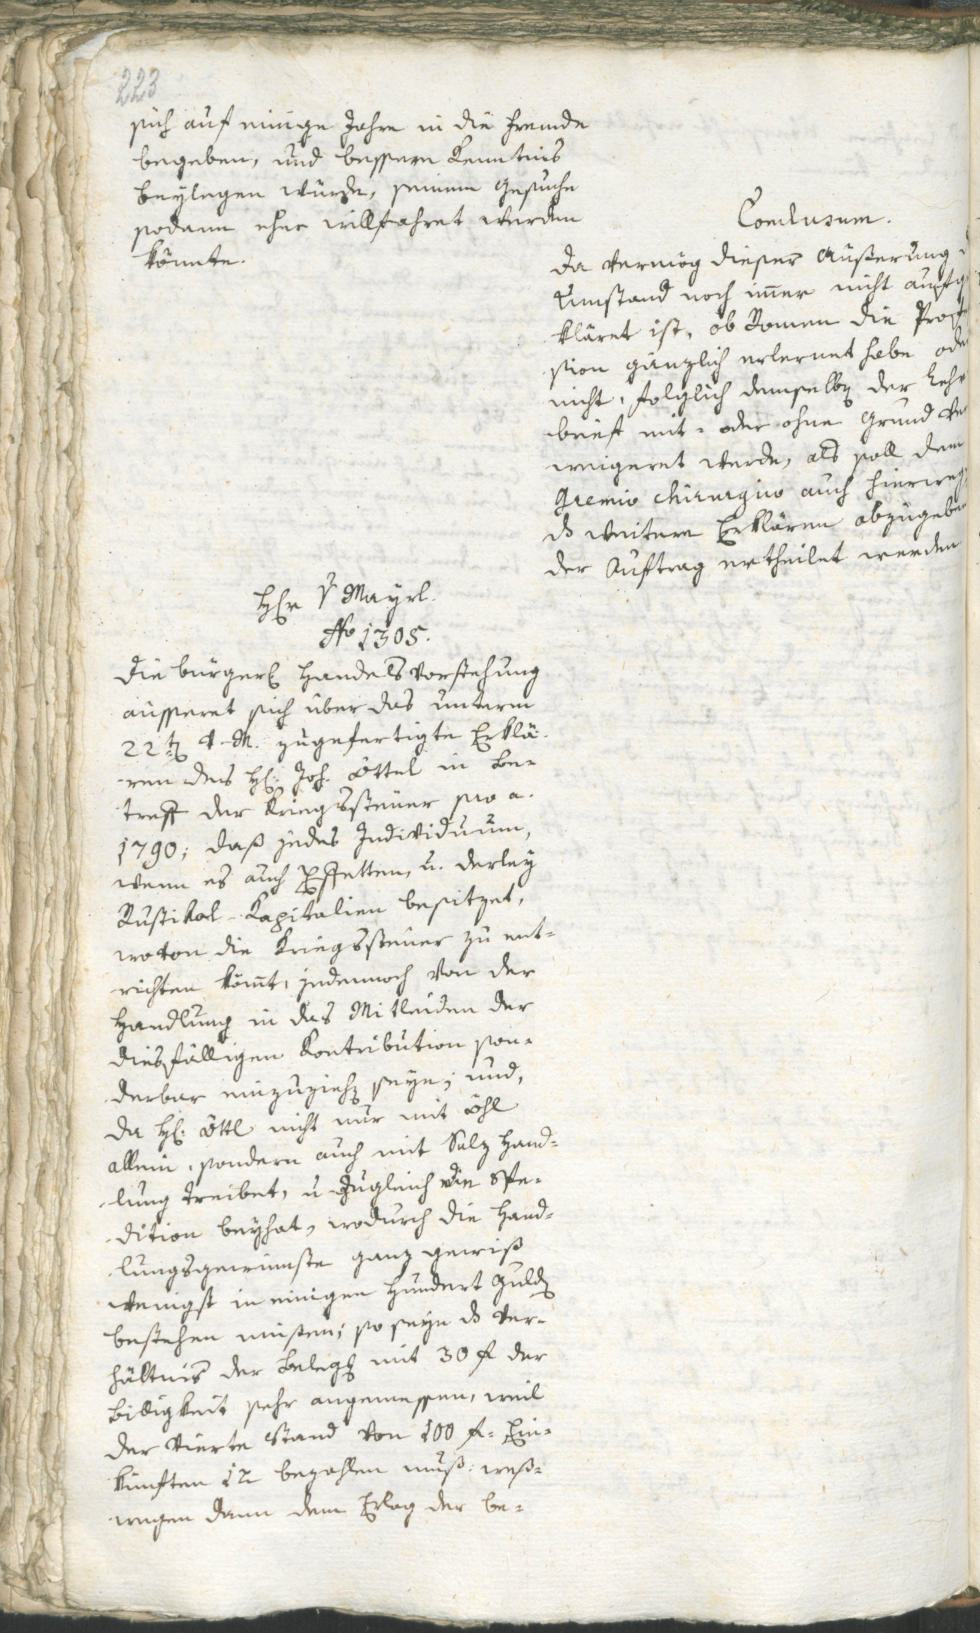 223
sich auf einige Jahre in die Fremde
begeben, und bessere Kenntnis
beylegen würde, seinem Gesuche
sodann eher willfahret werden
könnte.
Conclusum.
Da vermög dieser Äußerung
Umstand noch immer nicht aufge
kläret ist, ob Romen die Profes
sion gänzlich erlernet habe oder
nicht, folglich demselben der Lehr
brief mit- oder ohne Grund ver
weigeret werde, als soll dem
Gremio chirurgico auch hierwegen
die weitere Erklären abzugeben
der Auftrag ertheilet werden
Hr v Mayrl.
No 1305.
Die bürgerl Handelsvorstehung
äusseret sich über das unterm
22ten v. M. zugefertigte Erklä-
ren des H: Joh. Öttel in Be-
treff der Kriegssteuer pro a.
1790; daß jedes Individuum,
wenn es auch Effekten, u. derley
Rustikal-Kapitalien besitzet,
wovon die Kriegssteuer zu ent-
richten kömt, jedennoch von der
Handlung in das Mitleiden der
diesfälligen Kontribution son-
derbar einzuziehen seye; und,
da H: Öttl nicht nur mit Öhl
allein, sondern auch mit Salz Hand-
lung treibet, u zugleich die Spe-
dition beyhat, wodurch die Hand-
lungsgewinnste ganz gewiß
wenigst in einigen hundert Gulden
bestehen müsten; so seye die Ver-
hältnis der Beleg mit 30 f der
Billigkeit sehr angemessen, weil
der vierte Stand von 100 f. Ein-
künften 12 bezahlen muß: weß-
wegen dann dem Erlag der be-